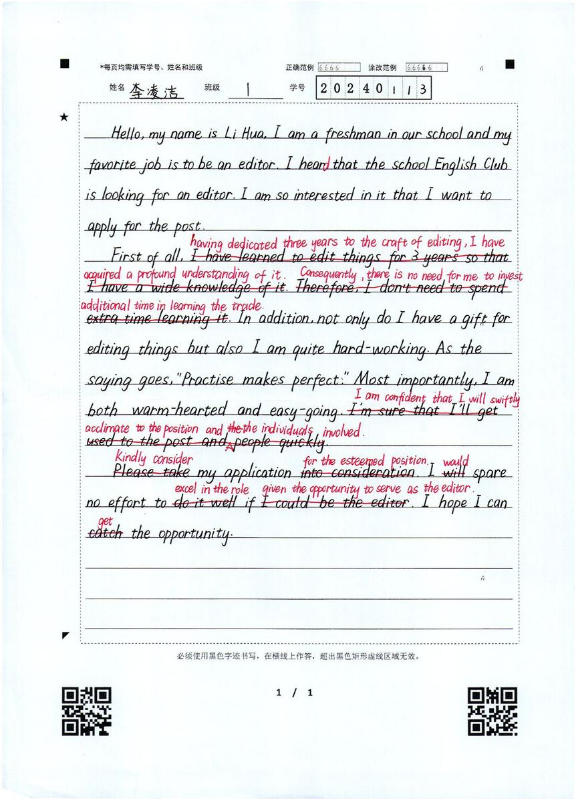 *每页均需填写学号、姓名和班级 正确范例 6666 涂改范例 66666
姓名 李凌洁 班级 1 学号 20240113
★
Hello, my name is Li Hua, I am a freshman in our school and my
favorite job is to be an editor. I heard that the school English Club
is looking for an editor. I am so interested in it that I want to
apply for the post.
having dedicated three years to the craft of editing, I have
First of all, I have learned to edit things for 3 years so that
acquired a profound understanding of it. Consequently, there is no need for me to invest
I have a wide knowledge of it. Therefore, I don't need to spend
additional time in learning the trade.
extra time learning it. In addition, not only do I have a gift for
editing things but also I am quite hard-working. As the
saying goes, "Practise makes perfect." Most importantly, I am
I am confident that I will swiftly
both warm-hearted and easy-going. I'm sure that I'll get
acclimate to the position and the the individuals involved.
used to the post and people quickly.
Kindly consider for the esteemed position. would
Please take my application into consideration. I will spare
excel in the role given the opportunity to serve as the editor.
no effort to do it well if I could be the editor. I hope I can
get
catch the opportunity.
必须使用黑色字迹书写，在横线上作答，超出黑色矩形虚线区域无效。
1 / 1